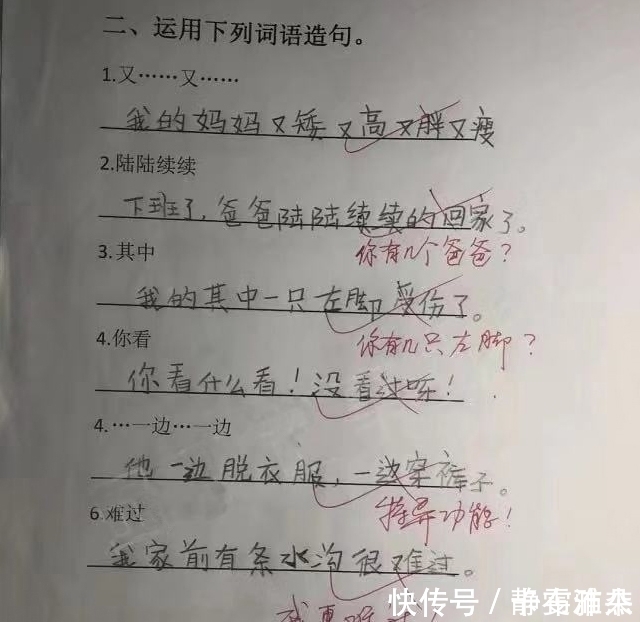 二、运用下列词语造句。
1.又……又……
我的妈妈又矮又高又胖又瘦
2.陆陆续续
下班了，爸爸陆陆续续的回家了。
你有几个爸爸？
3.其中
我的其中一只左脚受伤了。
你有几只左脚？
4.你看
你看什么看！没看过吗！
4.…一边…一边
他一边脱衣服，一边穿裤子。
特异功能！
6.难过
我家前有条水沟很难过。
快传号／